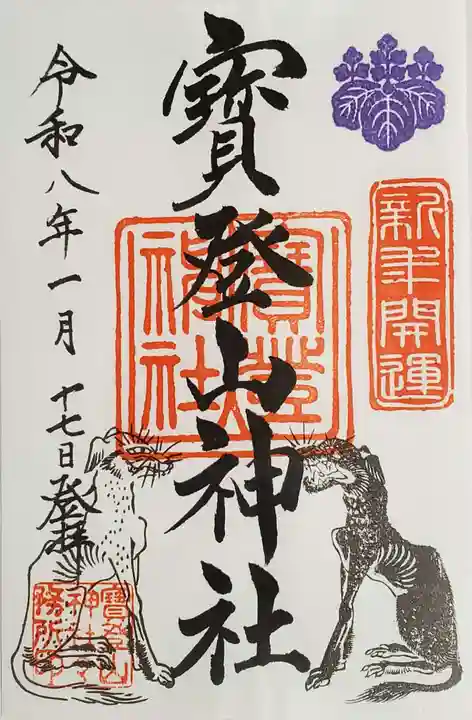 新年開運
寳登山神社
寳登山神社
令和八年一月十七日登拝
寳登山
神社
務所印